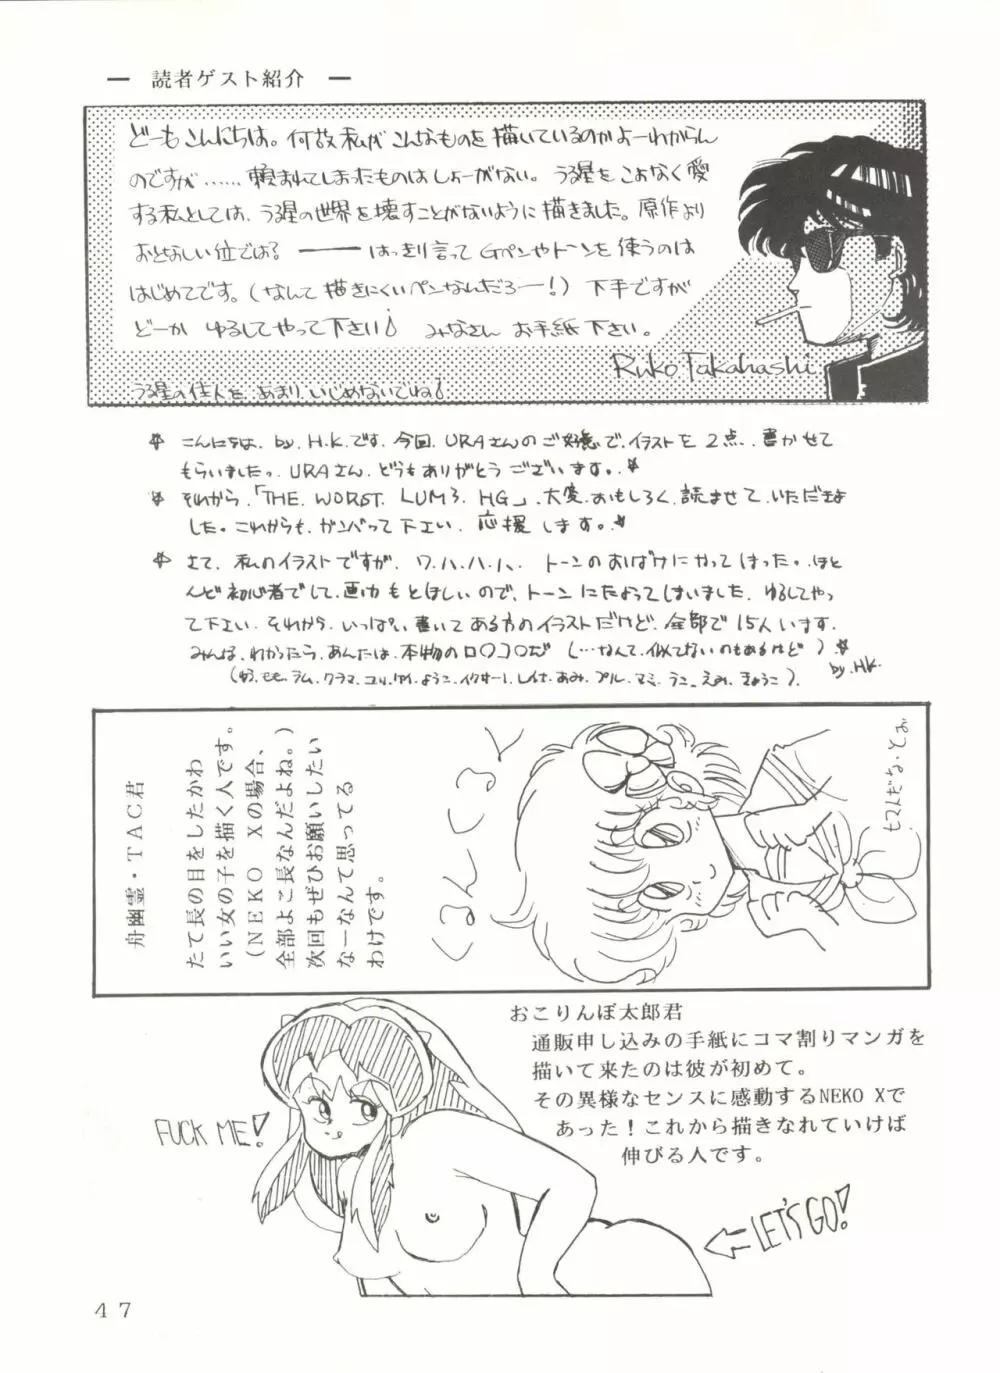 ― 読者ゲスト紹介 ―
どーもこんにちは。何故私がこんなものを描いているのかよーわからん
のですが……頼まれてしまったものはしょーがない。うる星をこよなく愛
する私としては、うる星の世界を壊すことがないように描きました。原作より
おとなしい位では? ――― はっきり言ってGペンやトーンを使うのは
はじめてです。(なんて描きにくいペンなんだろー!)下手ですが
どーか ゆるしてやって下さい! みなさん お手紙下さい。
Ruko Takahashi
うる星の住人を あまり いじめないでね!
☆ こんにちは、by. H.K.です。今回、URAさんのご好意で、イラストを2点、書かせて
もらいました。URAさん、どうもありがとうございます。☆
☆ それから、「THE WORST LUM 3. HG」、大変、おもしろく、読ませて、いただきま
した。これからも、ガンバって下さい、応援します。☆
☆ さて、私のイラストですが、ワ.ハ.ハ.ハ、トーンのおばけになってしまった。ほと
んど初心者でして、画力もとぼしいので、トーンにたよってしまいました、ゆるしてやっ
て下さい、それから、いっぱい書いてある方のイラストだけど、全部で15人います。
みんな、わかったら、あんたは、本物のロ〇コ〇だ(…なんて、似てないのもあるけど)☆
by. H.K.
(ゆう、モモ、ラム、クラマ、ユリ、ゆい、ようこ、イクサー1、レイナ、あみ、プル、マミ、うこ、えみ、きょうこ)
舟幽霊・TAC君
たて長の目をしたかわ
いい女の子を描く人です。
(NEKO Xの場合、
全部よこ長なんだよね。)
次回もぜひお願いしたい
なーなんて思ってる
わけです。
くるんくるっ
おこりんぼ太郎君
通販申し込みの手紙にコマ割りマンガを
描いて来たのは彼が初めて。
その異様なセンスに感動するNEKO Xで
あった!これから描きなれていけば
伸びる人です。
FUCK ME!
LET'S GO!
47